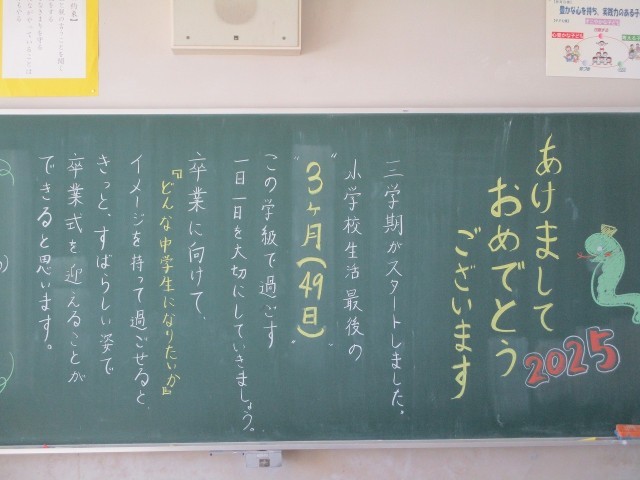 あけまして
おめでとう
ございます
2025
三学期がスタートしました。
小学校生活最後の
"3ヶ月(49日)"
この学級で過ごす
一日一日を大切にしていきましょう。
卒業に向けて、
『どんな中学生になりたいか』
イメージを持って過ごせると
きっと、すばらしい姿で
卒業式を迎えることが
できると思います。
豊かな心を持ち、実践力のある子